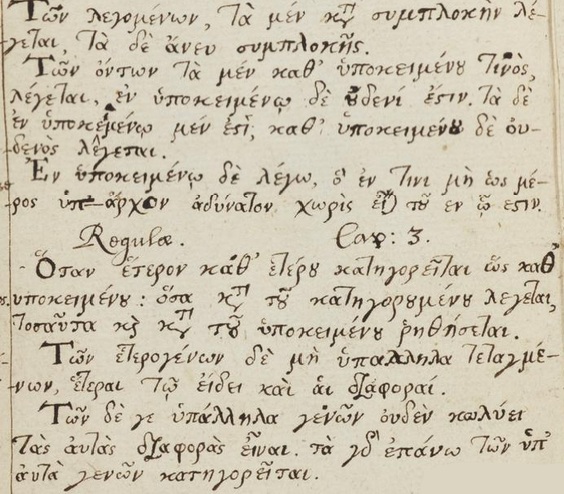 Τῶν λεγομένων, τὰ μέν κτ̀ συμπλοκὴν λέ-
γεται, τὰ δὲ ἄνευ συμπλοκῆς.
Τῶν ὄντων τὰ μέν καθ' ὑποκειμένου τινὸς,
λέγεται, ἐν ὑποκειμένῳ δὲ οὐδενί ἐστιν. τὰ δὲ
ἐν ὑποκειμένῳ μέν ἐστὶ, καθ' ὑποκειμένου δὲ οὐ-
δενὸς λέγεται.
Ἐν ὑποκειμένῳ δὲ λέγω, ὃ ἐν τινι μὴ ὡς μέ-
ρος ὑπ-άρχον ἀδύνατον χωρὶς εἶναι τοῦ ἐν ᾧ ἐστιν.
Regulæ. Cap: 3.
Ὅταν ἕτερον καθ' ἑτέρου κατηγορεῖται ὡς καθ'
ὑποκειμένου: ὅσα κτ̀ τοῦ κατηγορουμένου λεγεται,
τοσαῦτα κὶ κτ̀ τοῦ ὑποκειμένου ῥηθήσεται.
Τῶν ἑτερογένων δὲ μὴ ὑπαλληλα τεταγμέ-
νων, ἕτεραι τῷ εἴδει καὶ ἁι διαφοραί.
Τῶν δὲ γε ὑπάλληλα γενῶν ουδὲν κωλύει
τὰς ἀυτὰς διαφορὰς εἶναι. τὰ γὸ ἐπάνω τῶν ὑπ'
ἀυτὰ γενῶν κατηγορεῖται.